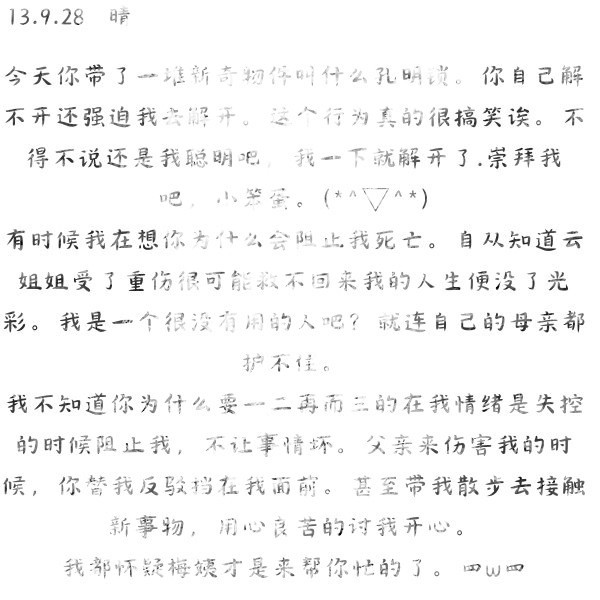 13.9.28 晴
今天你带了一堆新奇物件叫什么孔明锁。你自己解
不开还强迫我去解开。这个行为真的很搞笑诶。不
得不说还是我聪明吧，我一下就解开了.崇拜我
吧，小笨蛋。(*^▽^*)
有时候我在想你为什么会阻止我死亡。自从知道云
姐姐受了重伤很可能救不回来我的人生便没了光
彩。我是一个很没有用的人吧？就连自己的母亲都
护不住。
我不知道你为什么要一二再而三的在我情绪是失控
的时候阻止我，不让事情坏。父亲来伤害我的时
候，你替我反驳挡在我面前。甚至带我散步去接触
新事物，用心良苦的讨我开心。
我都怀疑梅姨才是来帮你忙的了。罒ω罒